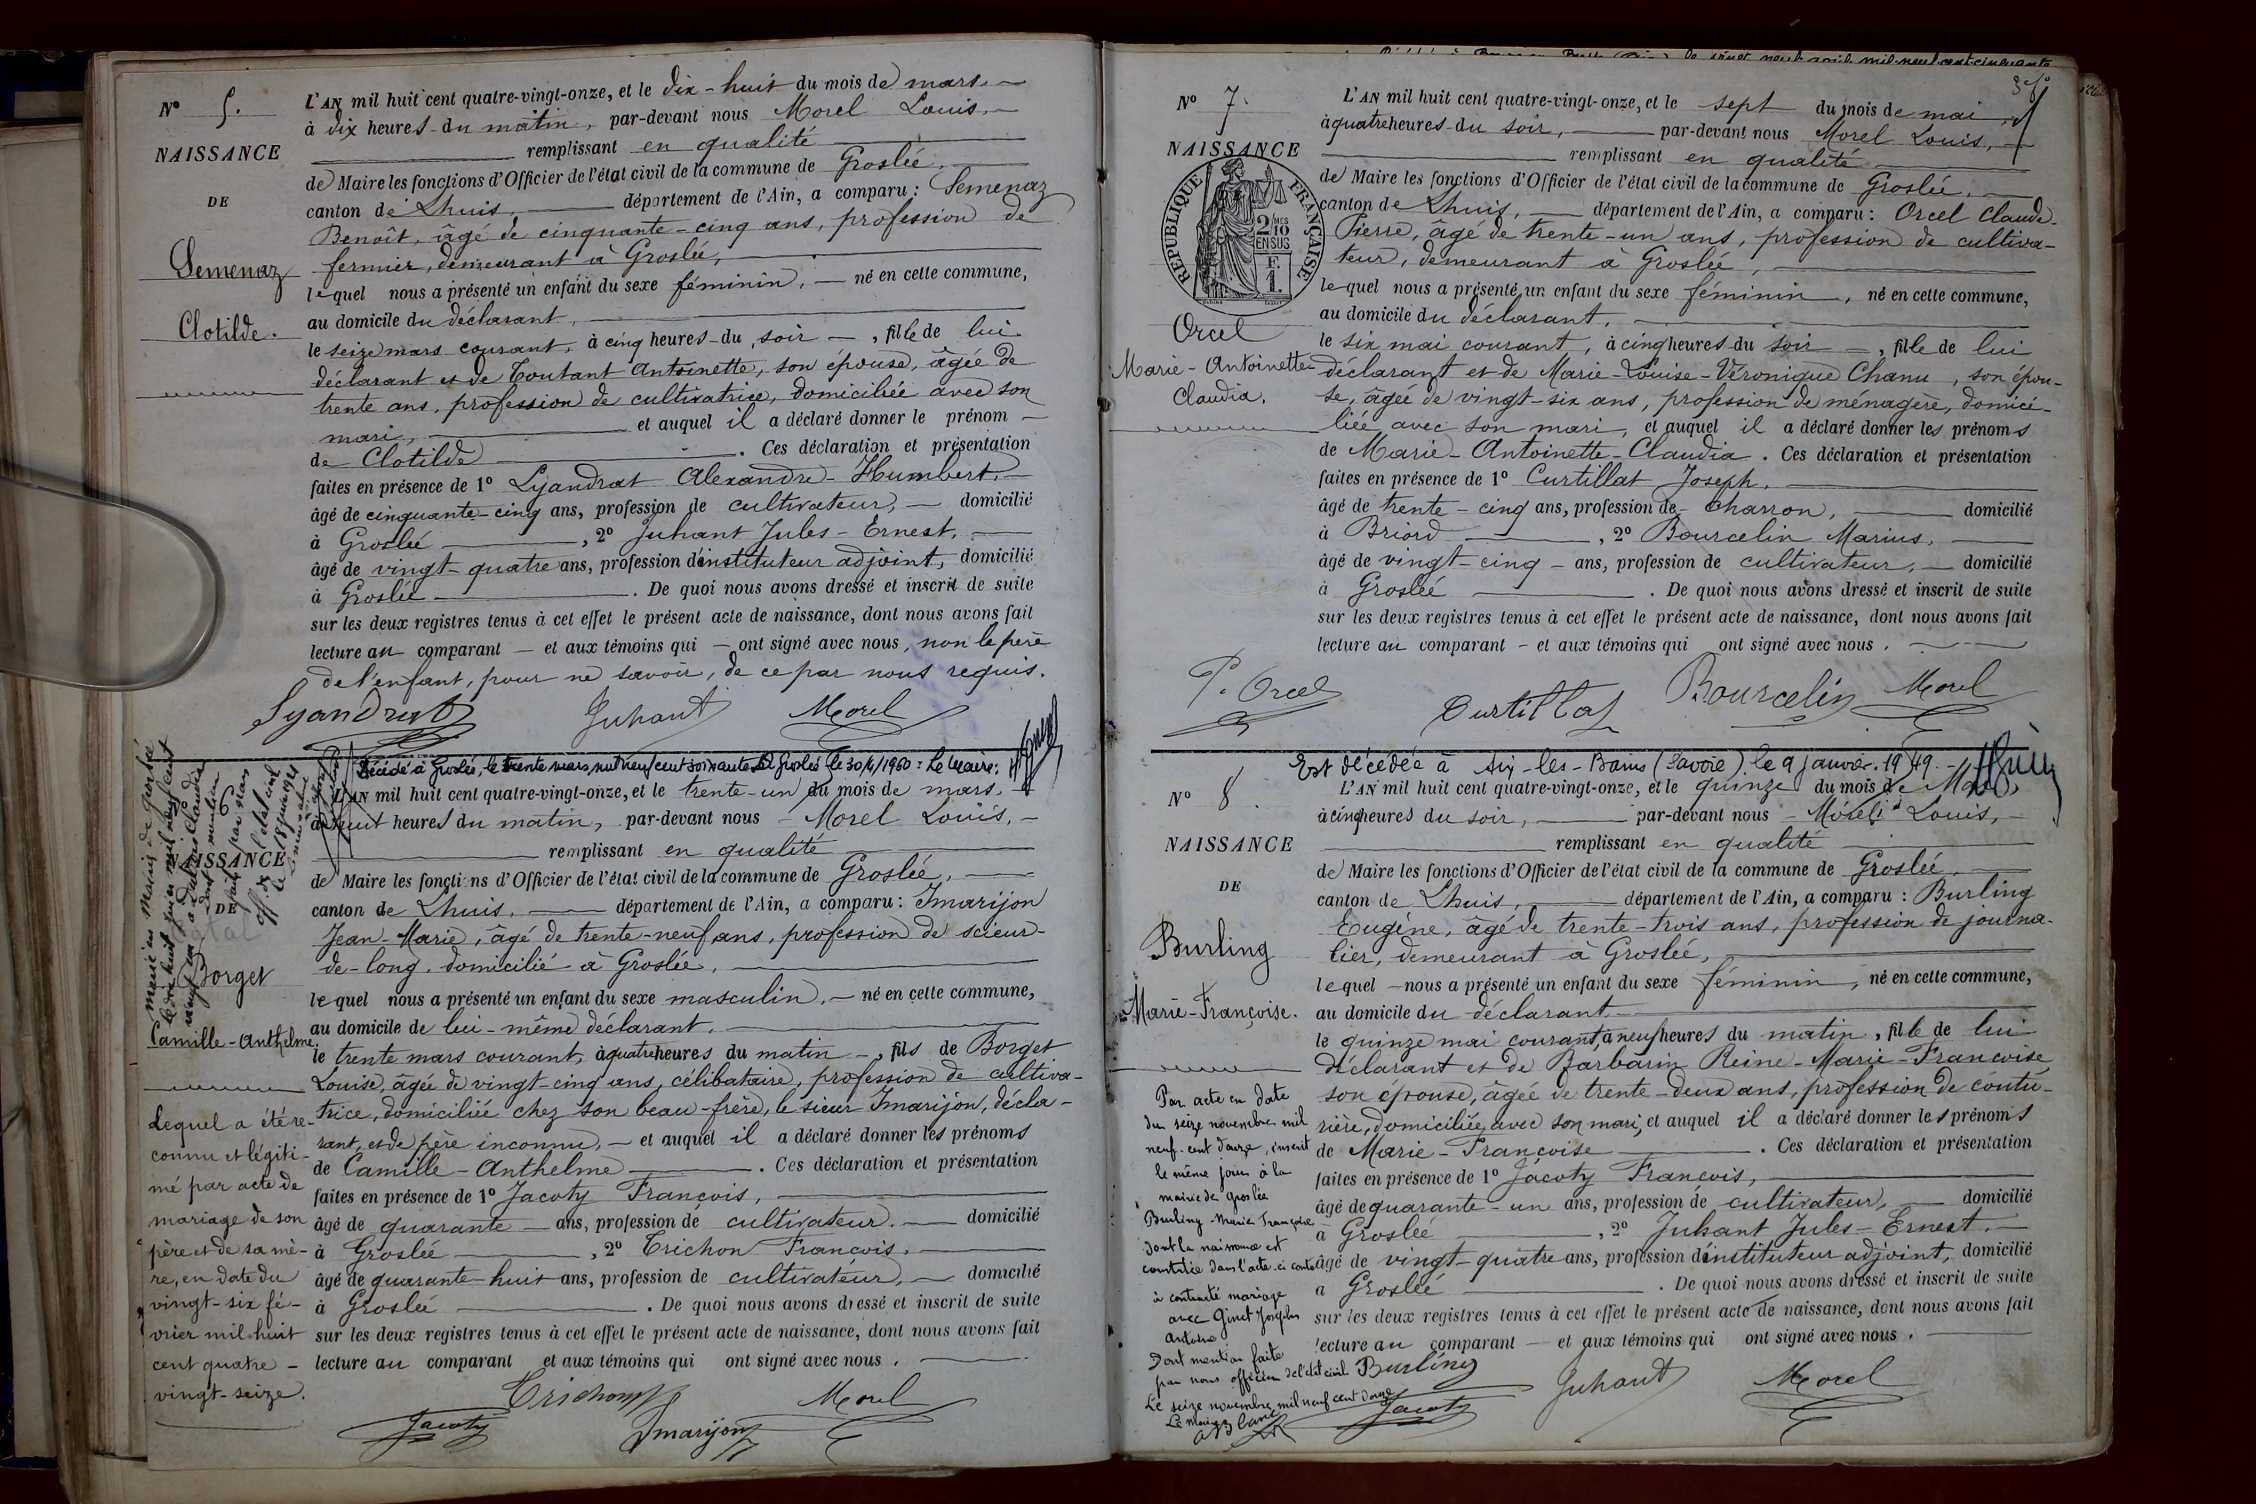 N° 5.
NAISSANCE
DE
Semenaz
Clotilde.
L'AN mil huit cent quatre-vingt-onze, et le dix-huit du mois de mars
à dix heures du matin, par-devant nous Morel Louis,
remplissant en qualité
de Maire les fonctions d'Officier de l'état civil de la commune de Groslée,
canton de Lhuis, département de l'Ain, a comparu : Semenaz
Benoît, âgé de cinquante-cinq ans, profession de
fermier, demeurant à Groslée,
lequel nous a présenté un enfant du sexe féminin, né en cette commune,
au domicile du déclarant,
le seize mars courant, à cinq heures du soir, fille de lui
déclarant et de Toutant Antoinette, son épouse, âgée de
trente ans, profession de cultivatrice, domiciliée avec son
mari, et auquel il a déclaré donner le prénom
de Clotilde. Ces déclaration et présentation
faites en présence de 1° Lyandrat Alexandre-Humbert,
âgé de cinquante-cinq ans, profession de cultivateur, domicilié
à Groslée, 2° Juhant Jules-Ernest,
âgé de vingt-quatre ans, profession d'instituteur adjoint, domicilié
à Groslée. De quoi nous avons dressé et inscrit de suite
sur les deux registres tenus à cet effet le présent acte de naissance, dont nous avons fait
lecture au comparant et aux témoins qui ont signé avec nous, non le père
de l'enfant, pour ne savoir, de ce par nous requis.
Lyandrat Juhant Morel
Décédé à Groslée, le trente mars mil neuf cent soixante Groslée le 30/4/1960 : Le Maire :
NAISSANCE
DE
Borget
Camille-Anthelme.
L'AN mil huit cent quatre-vingt-onze, et le trente-un du mois de mars,
à huit heures du matin, par-devant nous Morel Louis,
remplissant en qualité
de Maire les fonctions d'Officier de l'état civil de la commune de Groslée,
canton de Lhuis, département de l'Ain, a comparu : Imarijon
Jean-Marie, âgé de trente-neuf ans, profession de scieur-
de-long, domicilié à Groslée,
lequel nous a présenté un enfant du sexe masculin, né en cette commune,
au domicile de lui-même déclarant,
le trente mars courant, à quatre heures du matin, fils de Borget
Louise, âgée de vingt-cinq ans, célibataire, profession de cultiva-
trice, domiciliée chez son beau-frère, le sieur Imarijon, décla-
rant, et de père inconnu, et auquel il a déclaré donner les prénoms
de Camille-Anthelme. Ces déclaration et présentation
faites en présence de 1° Jacoty François,
âgé de quarante ans, profession de cultivateur, domicilié
à Groslée, 2° Trichon François,
âgé de quarante-huit ans, profession de cultivateur, domicilié
à Groslée. De quoi nous avons dressé et inscrit de suite
sur les deux registres tenus à cet effet le présent acte de naissance, dont nous avons fait
lecture au comparant et aux témoins qui ont signé avec nous.
Trichon Morel
Jacoty Imarijon
Lequel a été re-
connu et légiti-
mé par acte de
mariage de son
père et de sa mè-
re, en date du
vingt-six fé-
vrier mil huit
cent quatre-
vingt-seize.
N° 7.
NAISSANCE
RÉPUBLIQUE FRANÇAISE
2 MES
10
EN SUS
F.
1.
Orcel
Marie-Antoinette-
Claudia.
L'AN mil huit cent quatre-vingt-onze, et le sept du mois de mai
à quatre heures du soir, par-devant nous Morel Louis,
remplissant en qualité
de Maire les fonctions d'Officier de l'état civil de la commune de Groslée,
canton de Lhuis, département de l'Ain, a comparu : Orcel Claude-
Pierre, âgé de trente-un ans, profession de cultiva-
teur, demeurant à Groslée,
lequel nous a présenté un enfant du sexe féminin, né en cette commune,
au domicile du déclarant,
le six mai courant, à cinq heures du soir, fille de lui
déclarant et de Marie-Louise-Véronique Chanu, son épou-
se, âgée de vingt-six ans, profession de ménagère, domici-
liée avec son mari, et auquel il a déclaré donner les prénoms
de Marie-Antoinette-Claudia. Ces déclaration et présentation
faites en présence de 1° Curtillat Joseph,
âgé de trente-cinq ans, profession de charron, domicilié
à Briord, 2° Bourcelin Marius,
âgé de vingt-cinq ans, profession de cultivateur, domicilié
à Groslée. De quoi nous avons dressé et inscrit de suite
sur les deux registres tenus à cet effet le présent acte de naissance, dont nous avons fait
lecture au comparant et aux témoins qui ont signé avec nous.
P. Orcel Curtillat Bourcelin Morel
Est décédée à Aix-les-Bains (Savoie) le 9 janvier 1949
N° 8.
NAISSANCE
DE
Burling
Marie-Françoise.
L'AN mil huit cent quatre-vingt-onze, et le quinze du mois de Mai,
à cinq heures du soir, par-devant nous Morel Louis,
remplissant en qualité
de Maire les fonctions d'Officier de l'état civil de la commune de Groslée,
canton de Lhuis, département de l'Ain, a comparu : Burling
Eugène, âgé de trente-trois ans, profession de journa-
lier, demeurant à Groslée,
lequel nous a présenté un enfant du sexe féminin, né en cette commune,
au domicile du déclarant
le quinze mai courant, à neuf heures du matin, fille de lui
déclarant et de Barbarin Reine-Marie-Françoise
son épouse, âgée de trente-deux ans, profession de coutu-
rière, domiciliée avec son mari, et auquel il a déclaré donner les prénoms
de Marie-Françoise. Ces déclaration et présentation
faites en présence de 1° Jacoty François,
âgé de quarante-un ans, profession de cultivateur, domicilié
à Groslée, 2° Juhant Jules-Ernest,
âgé de vingt-quatre ans, profession d'instituteur adjoint, domicilié
à Groslée. De quoi nous avons dressé et inscrit de suite
sur les deux registres tenus à cet effet le présent acte de naissance, dont nous avons fait
lecture au comparant et aux témoins qui ont signé avec nous.
Burling Juhant Morel
Jacoty
Par acte en date
du seize novembre mil
neuf-cent douze, inscrit
le même jour à la
mairie de Groslée
Burling Marie Françoise
dont la naissance est
constatée dans l'acte ci contre
à contracté mariage
avec Ginet Joseph
Antoine
Dont mention faite
par nous officier de l'état civil
Le seize novembre mil neuf cent douze
Le Maire